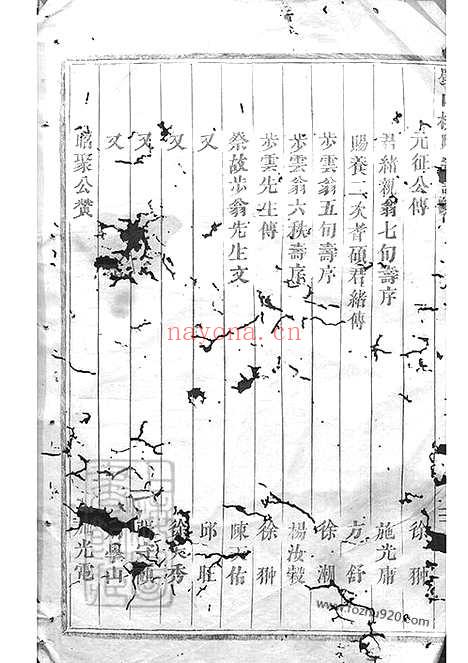 元征公傳 徐翀
君緒親翁七旬壽序 施光庸
賜養二次耆碩君緒傳 方舒
步雲翁五旬壽序 徐潮
步雲翁六秩壽序 楊汝穀
步雲先生傳 徐翀
祭故步翁先生文 陳佑
又 邱旺
又 秀
又
又 學山
聚公贊 施光電
nayona.cn
www.fozhu920.com